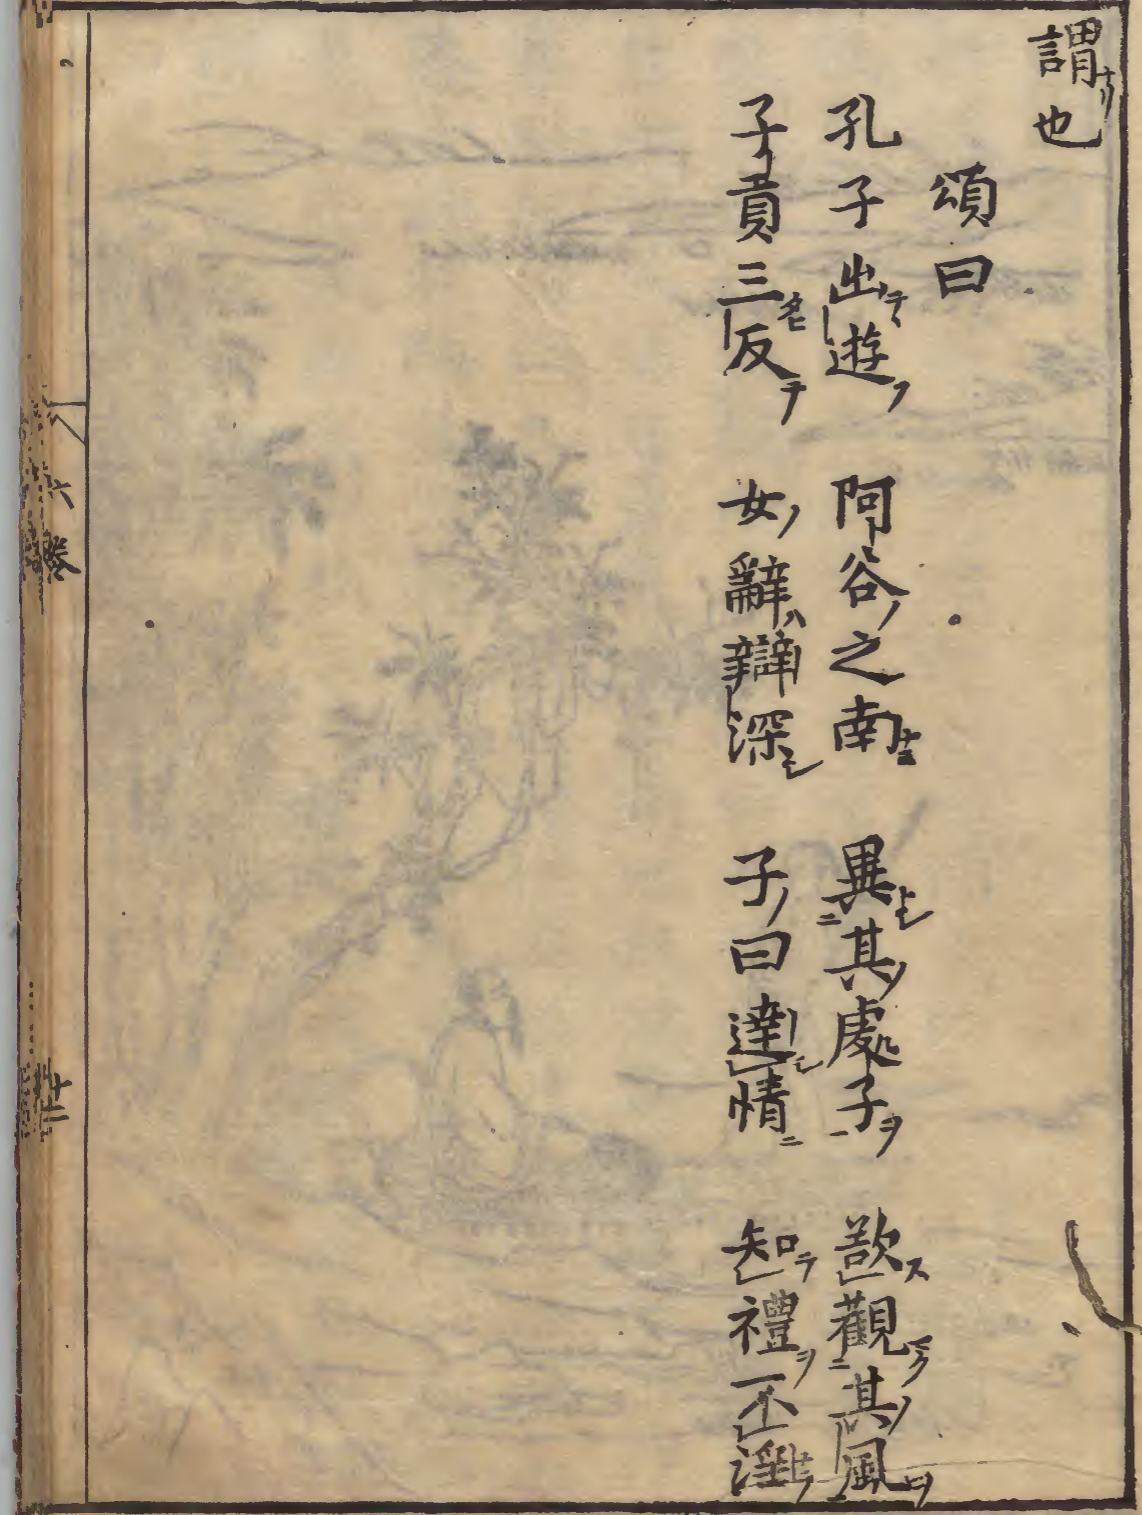 謂也
頌曰
孔子出遊 阿谷之南 異其處子 欲觀其風
子貢三反 女辭辯深 子曰達情 知禮不淫
六巻
十二